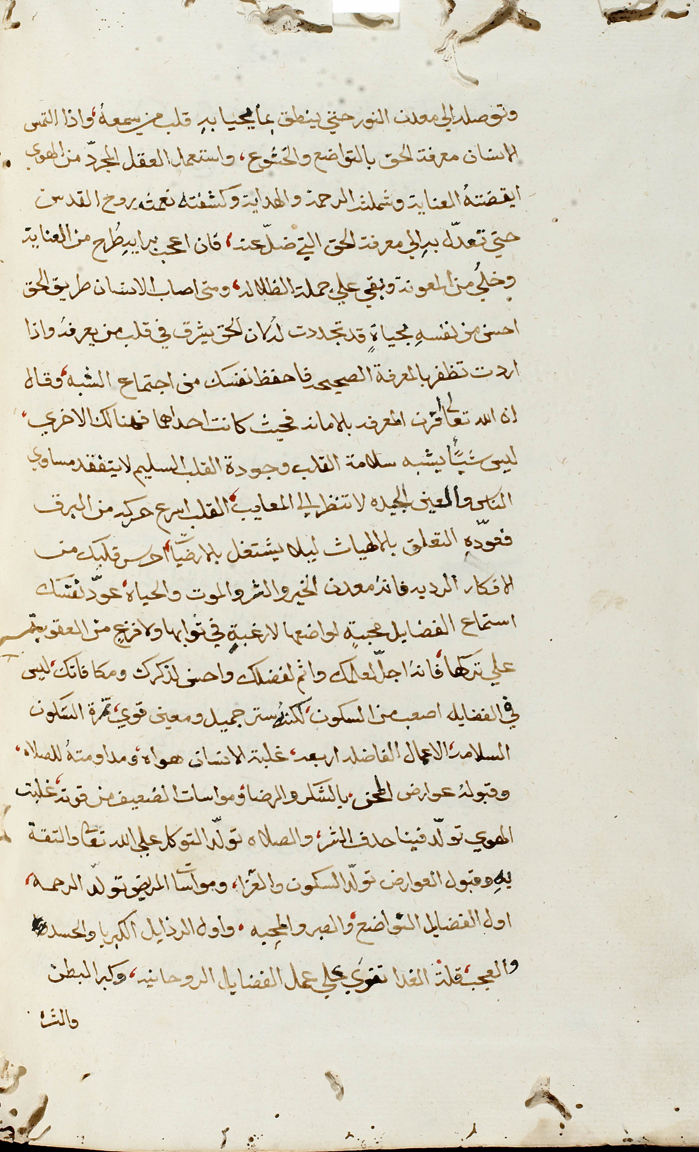 وتوصله الي معدن النور حتي ينطق بما يحيا به قلب من يسمعه، واذا التمس
الانسان معرفة الحق بالتواضع والخشوع، واستعمل العقل المجرّد من الهوي
ايقضته العناية وشملته الرحمة والهداية وكشفته نعمة روح القدس
حتي تعدله به الي معرفة الحق التي ضلّ عنه، فان اعجب برايه طُرح من العناية
وخلي من المعونة وبقي علي جملة الظلاله، ومتي اصاب الانسان طريق الحق
احسن من نفسه بحياةٍ قد تجددت له لان الحق يشرق في قلب من يعرفه واذا
اردت تظفر بالمعرفة الصحيحه فاحفظ نفسك من اجتماع الشبه، وقال
ان الله تعالي قرن المعرفه بالامانه فحيث كانت احداها فهنالك الاخري،
ليس شيًا يشبه سلامة القلب وجودة القلب السليم لا يتفقد مساوي
الناس والعين الجيده لا تنظر الي المعايب، القلب اسرع حركه من البرق
فعوّده التعلق بالالهيات ليلا يشتغل بالارضيّا، احرس قلبك من
الافكار الرديه فانه معدن الخير والشر والموت والحياه، عوّد نفسك
استماع الفضايل محبةٍ لواضعها لا رغبةٍ في ثوابها ولا فزع من العقوبة
علي تركها، فانه اجلّ لعلمك واتم لفضلك واحسن لذكرك ومكافاتك، ليس
في الفضايله اصعب من السكون، لكنه ستر جميل ومعين قوي، ثمرة السكون
السلامه، الاعمال الفاضله اربعه، غلبة الانسان هواه، ومداومته للصلاه،
وقبوله عوارض المحن، بالشكر والرضا، ومواسات الضعيف من قوته، غلبت
الهوي تولّد فينا حدف الشر، والصلاه تولّد التوكل علي الله تعا والثقة
به، وقبول العوارض تولّد السكون والعزا، ومواسا المريض تولّد الرحمه،
اول الفضايل التواضع والصبر والمحبه، واول الرذايل الكبريا والحسد
والعجب، قلة الغدا تقوي علي عمل الفضايل الروحانيه، وكبر البطن
والشره